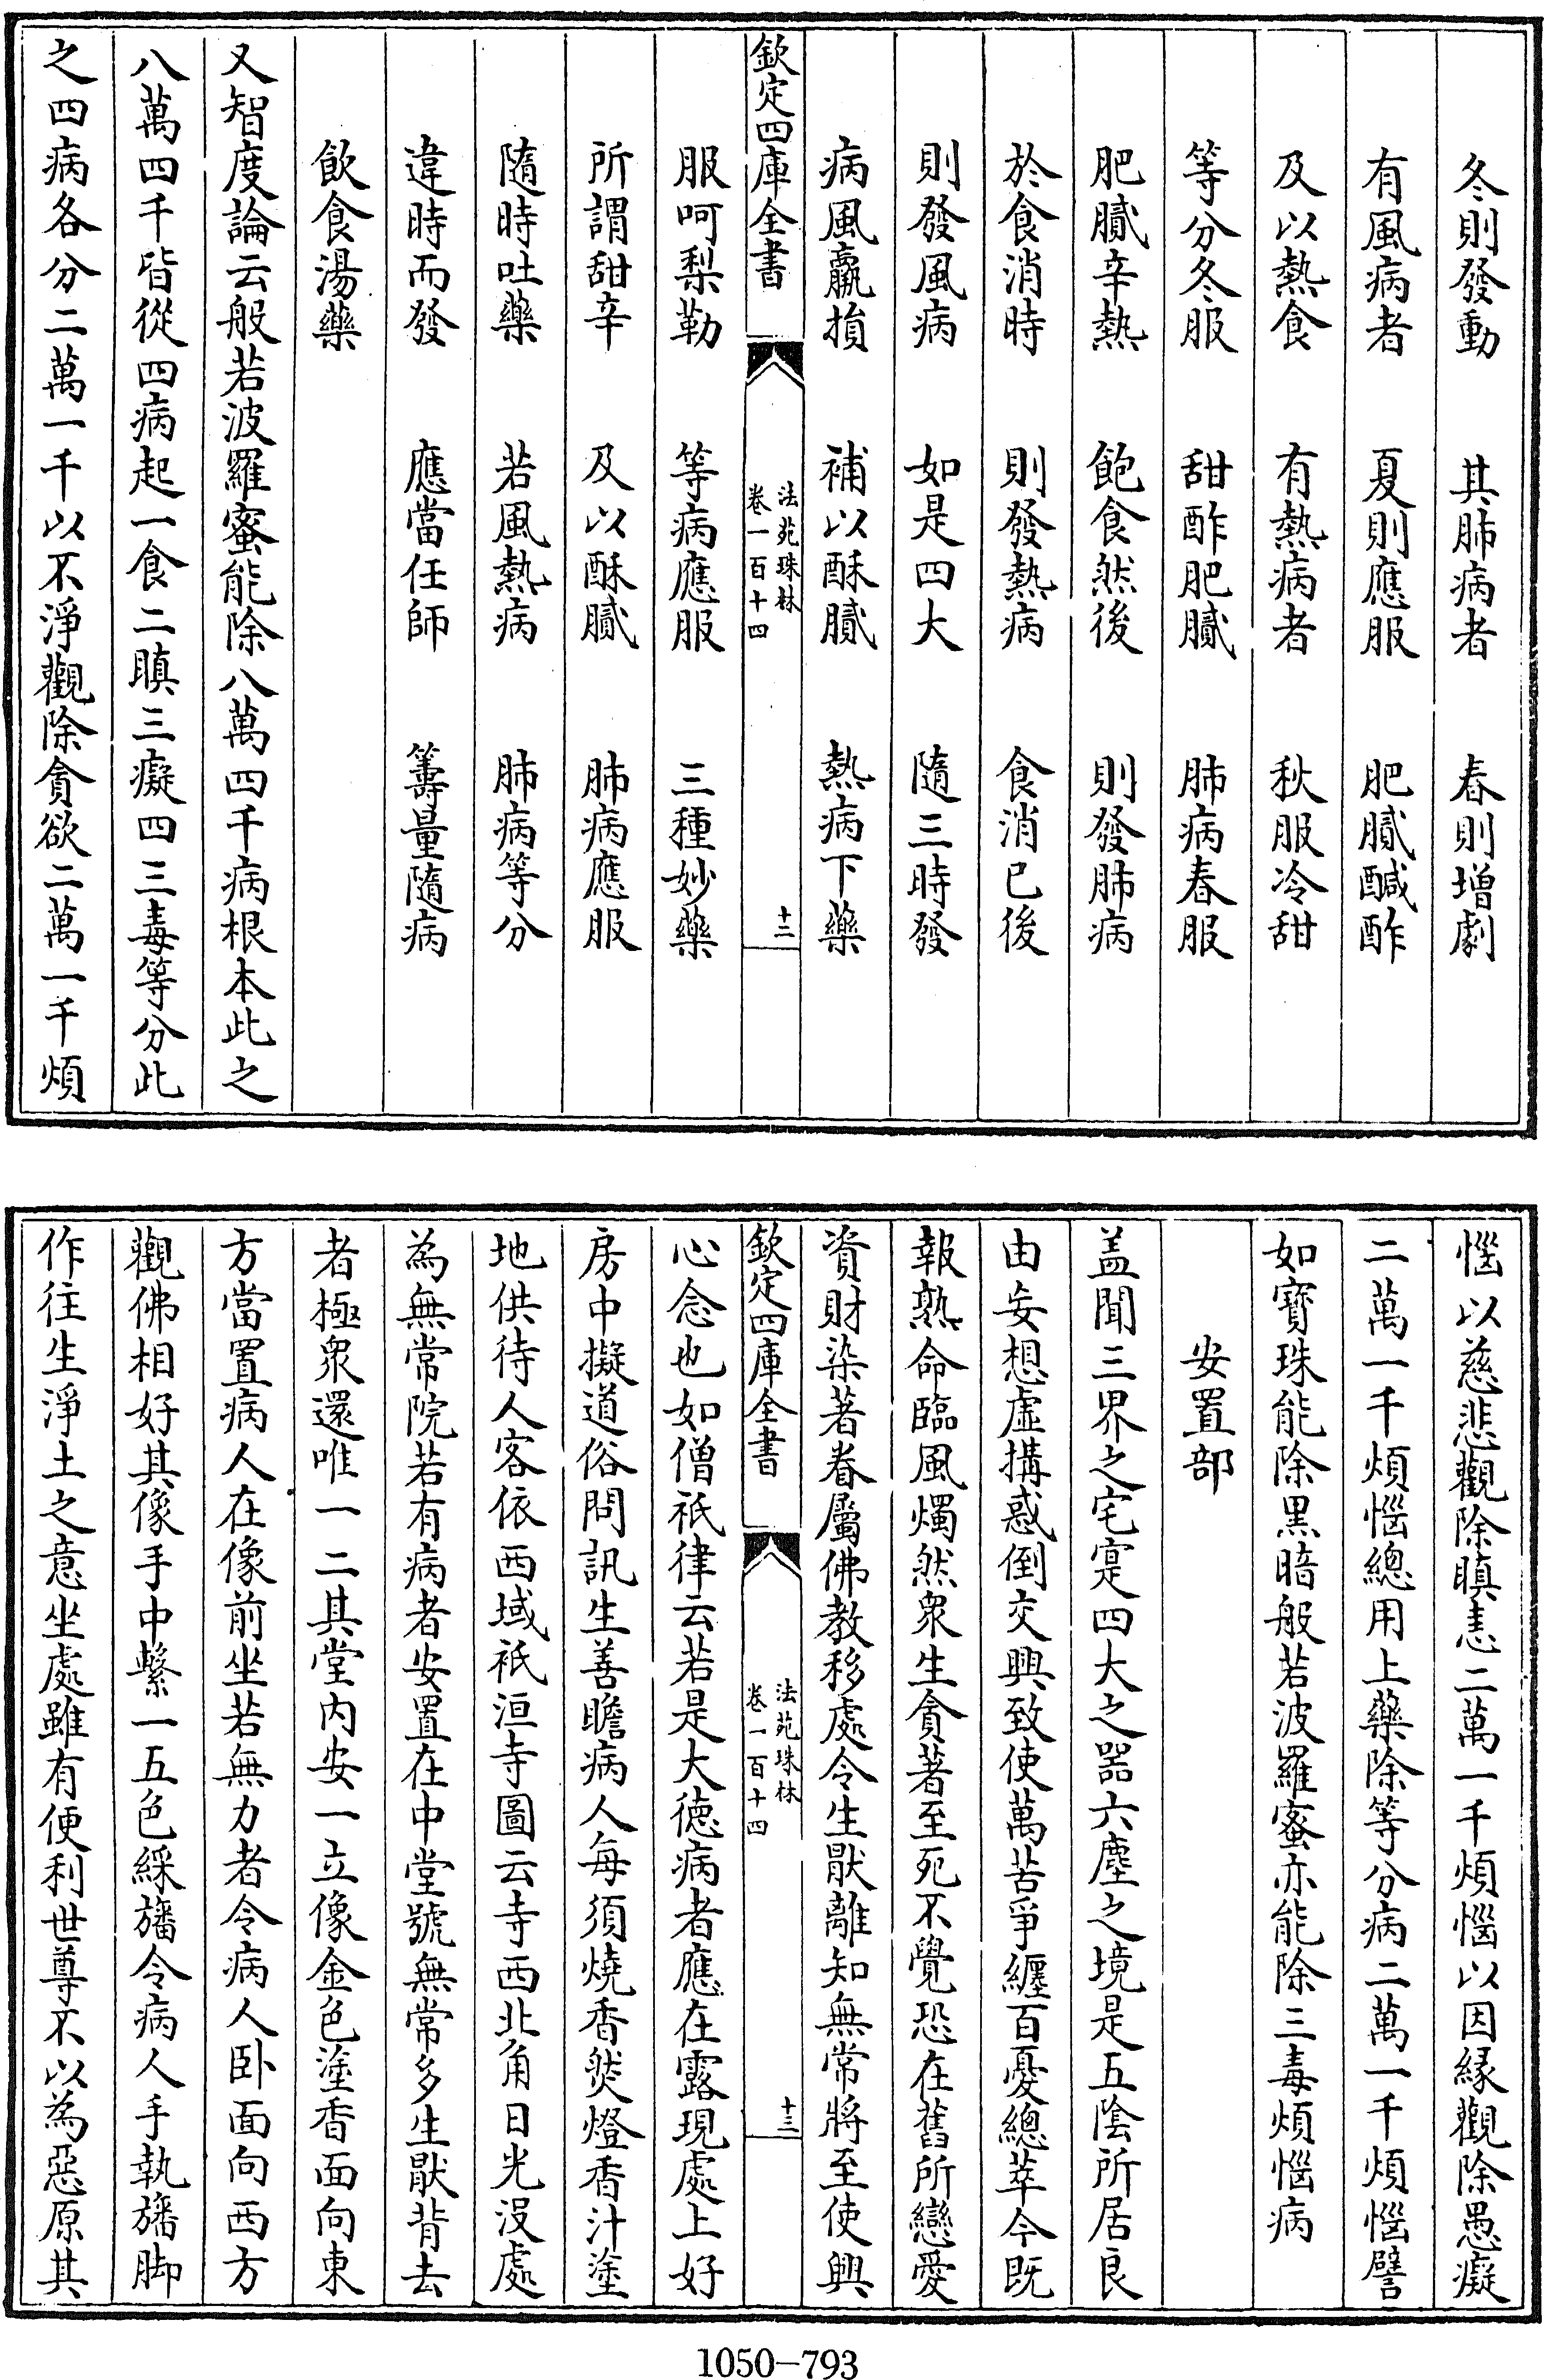 冬則發動　其肺病者　春則增劇
有風病者　夏則應服　肥膩醎酢
及以熱食　有熱病者　秋服冷甜
等分冬服　甜酢肥膩　肺病春服
肥膩辛熱　飽食然後　則發肺病
於食消時　則發熱病　食消已後
則發風病　如是四大　隨三時發
病風羸損　補以酥膩　熱病下藥
欽定四庫全書　法苑珠林　卷一百十四　十二
服呵梨勒　等病應服　三種妙藥
所謂甜辛　及以酥膩　肺病應服
隨時吐藥　若風熱病　肺病等分
違時而發　應當任師　籌量隨病
飲食湯藥
又智度論云般若波羅蜜能除八萬四千病根本此之
八萬四千皆從四病起一食二瞋三癡四三毒等分此
之四病各分二萬一千以不淨觀除貪欲二萬一千煩
惱以慈悲觀除瞋恚二萬一千煩惱以因緣觀除愚癡
二萬一千煩惱總用上藥除等分病二萬一千煩惱譬
如寶珠能除黑暗般若波羅蜜亦能除三毒煩惱病
安置部
盖聞三界之宅寔四大之器六塵之境是五陰所居良
由妄想虛搆惑倒交興致使萬苦爭纏百憂總萃今既
報熟命臨風燭然衆生貪著至死不覺恐在舊所戀愛
資財染著眷屬佛教移處令生厭離知無常將至使興
欽定四庫全書　法苑珠林　卷一百十四　十三
心念也如僧祇律云若是大德病者應在露現處上好
房中擬道俗問訊生善瞻病人每須燒香然燈香汁塗
地供待人客依西域祇洹寺圖云寺西北角日光沒處
為無常院若有病者安置在中堂號無常多生厭背去
者極衆還唯一二其堂內安一立像金色塗香面向東
方當置病人在像前坐若無力者令病人卧面向西方
觀佛相好其像手中繫一五色綵旛令病人手執旛脚
作往生淨土之意坐處雖有便利世尊不以為惡原其
1050-793